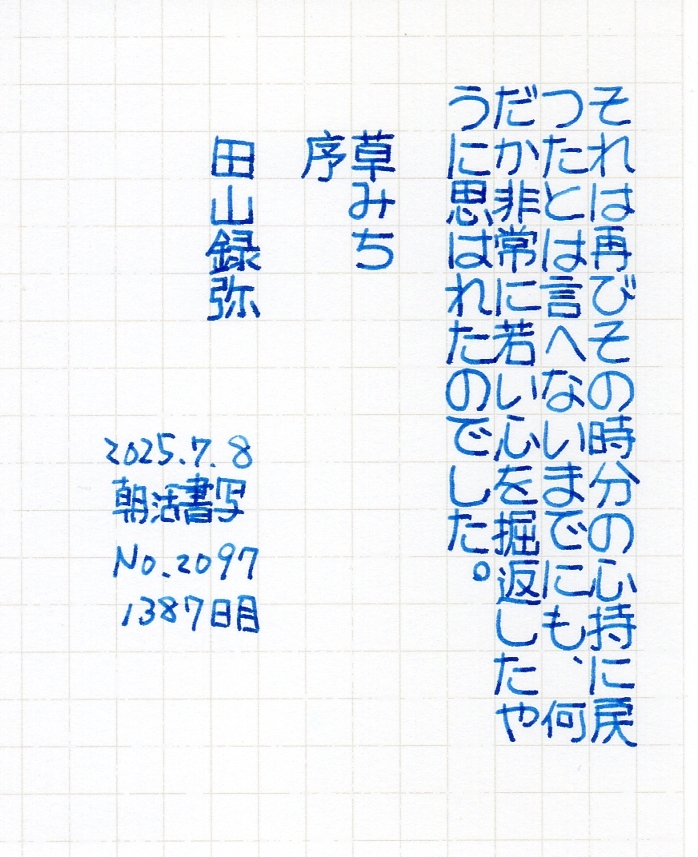 それは再びその時分の心持に戻
つたとは言へないまでにも、何
だか非常に若い心を掘返したや
うに思はれたのでした。
草みち
序
田山録弥
2025.7.8
朝活書写
No.2097
1387日目